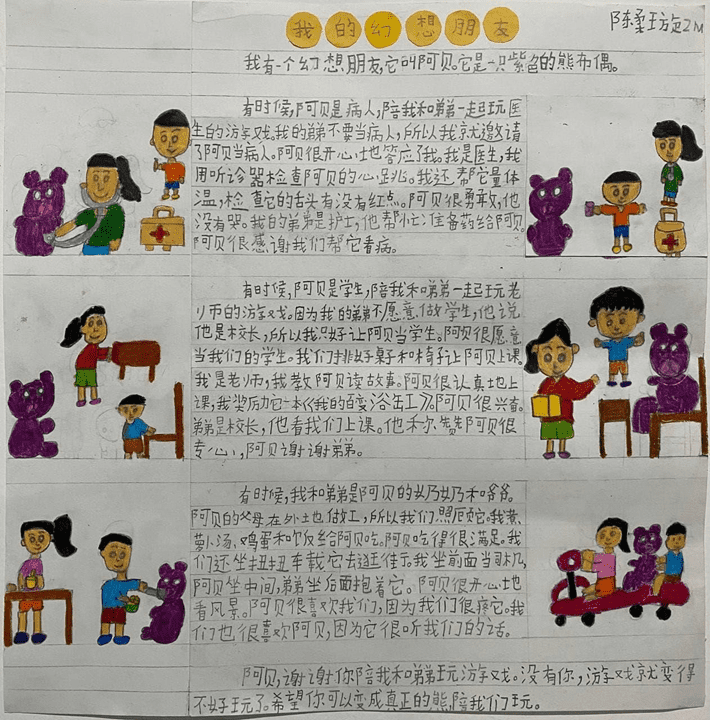 我的幻想朋友
陈柔玙旋2M
我有一个幻想朋友,它叫阿贝。它是一只紫色的熊布偶。
有时候,阿贝是病人,陪我和弟弟一起玩医
生的游戏。我的弟弟不要当病人,所以我就邀请
了阿贝当病人。阿贝很开心地答应了我。我是医生,我
用听诊器检查阿贝的心跳。我还帮它量体
温,检查它的舌头有没有红点。阿贝很勇敢,他
没有哭。我的弟弟是护士,他帮忙准备药给阿贝。
阿贝很感谢我们帮它看病。
有时候,阿贝是学生,陪我和弟弟一起玩老
师的游戏。因为我的弟弟不愿意做学生,他说
他是校长,所以我只好让阿贝当学生。阿贝很愿意
当我们的学生。我们排好桌子和椅子让阿贝上课
我是老师,我教阿贝读故事。阿贝很认真地上
课,我奖励它一本《我的百变浴缸》。阿贝很兴奋。
弟弟是校长,他看我们上课。他称赞阿贝很
专心,阿贝谢谢弟弟。
有时候,我和弟弟是阿贝的奶奶和爷爷。
阿贝的父母在外地做工,所以我们照顾它。我煮
萝卜汤、鸡蛋和饭给阿贝吃。阿贝吃得很满足。我
们还坐扭扭车载它去逛街。我坐前面当司机,
阿贝坐中间,弟弟坐后面抱着它。阿贝很开心地
看风景。阿贝很喜欢我们,因为我们很疼它。我
们也很喜欢阿贝,因为它很听我们的话。
阿贝,谢谢你陪我和弟弟玩游戏。没有你,游戏就变得
不好玩了。希望你可以变成真正的熊,陪我们玩。